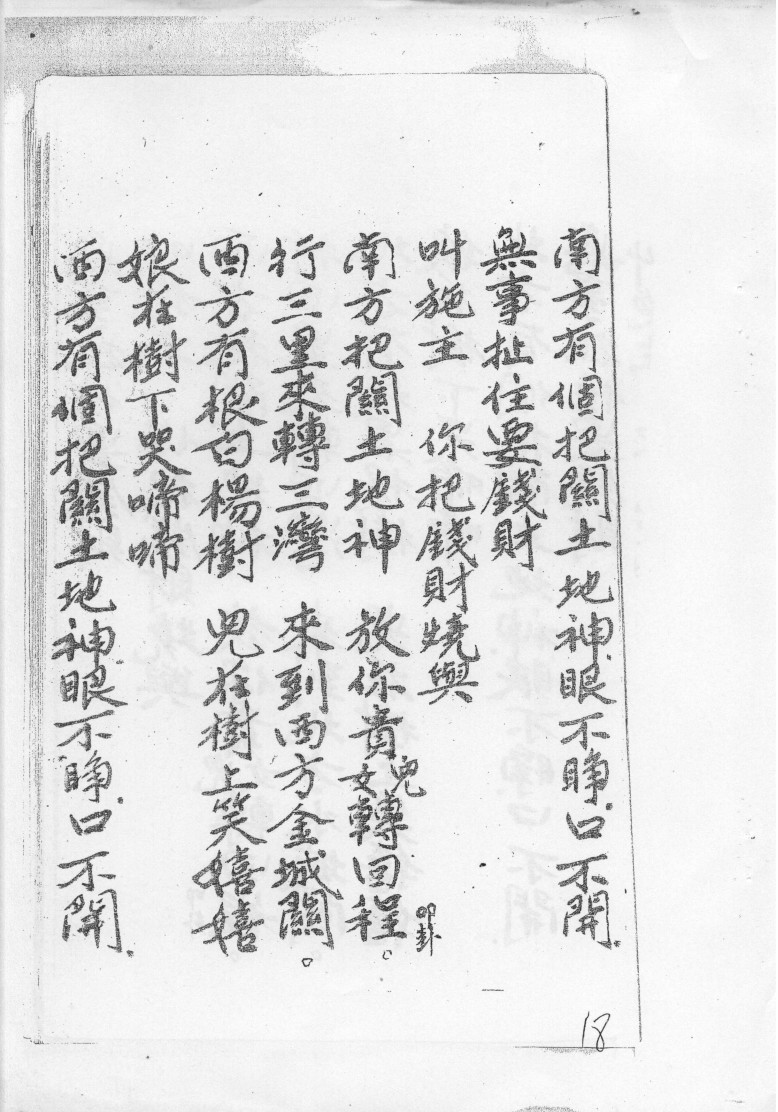 南方有個把關土地神眼不睁口不開
無事扯住要錢財
叫施主　你把錢財燒與
南方把關土地神　放你貴兒女轉回程。卯卦
行三里來轉三灣　來到西方金城關。
西方有根白楊樹　兒在樹上笑嘻嘻
娘在樹下哭啼啼
西方有個把關土地神眼不睁口不開
18